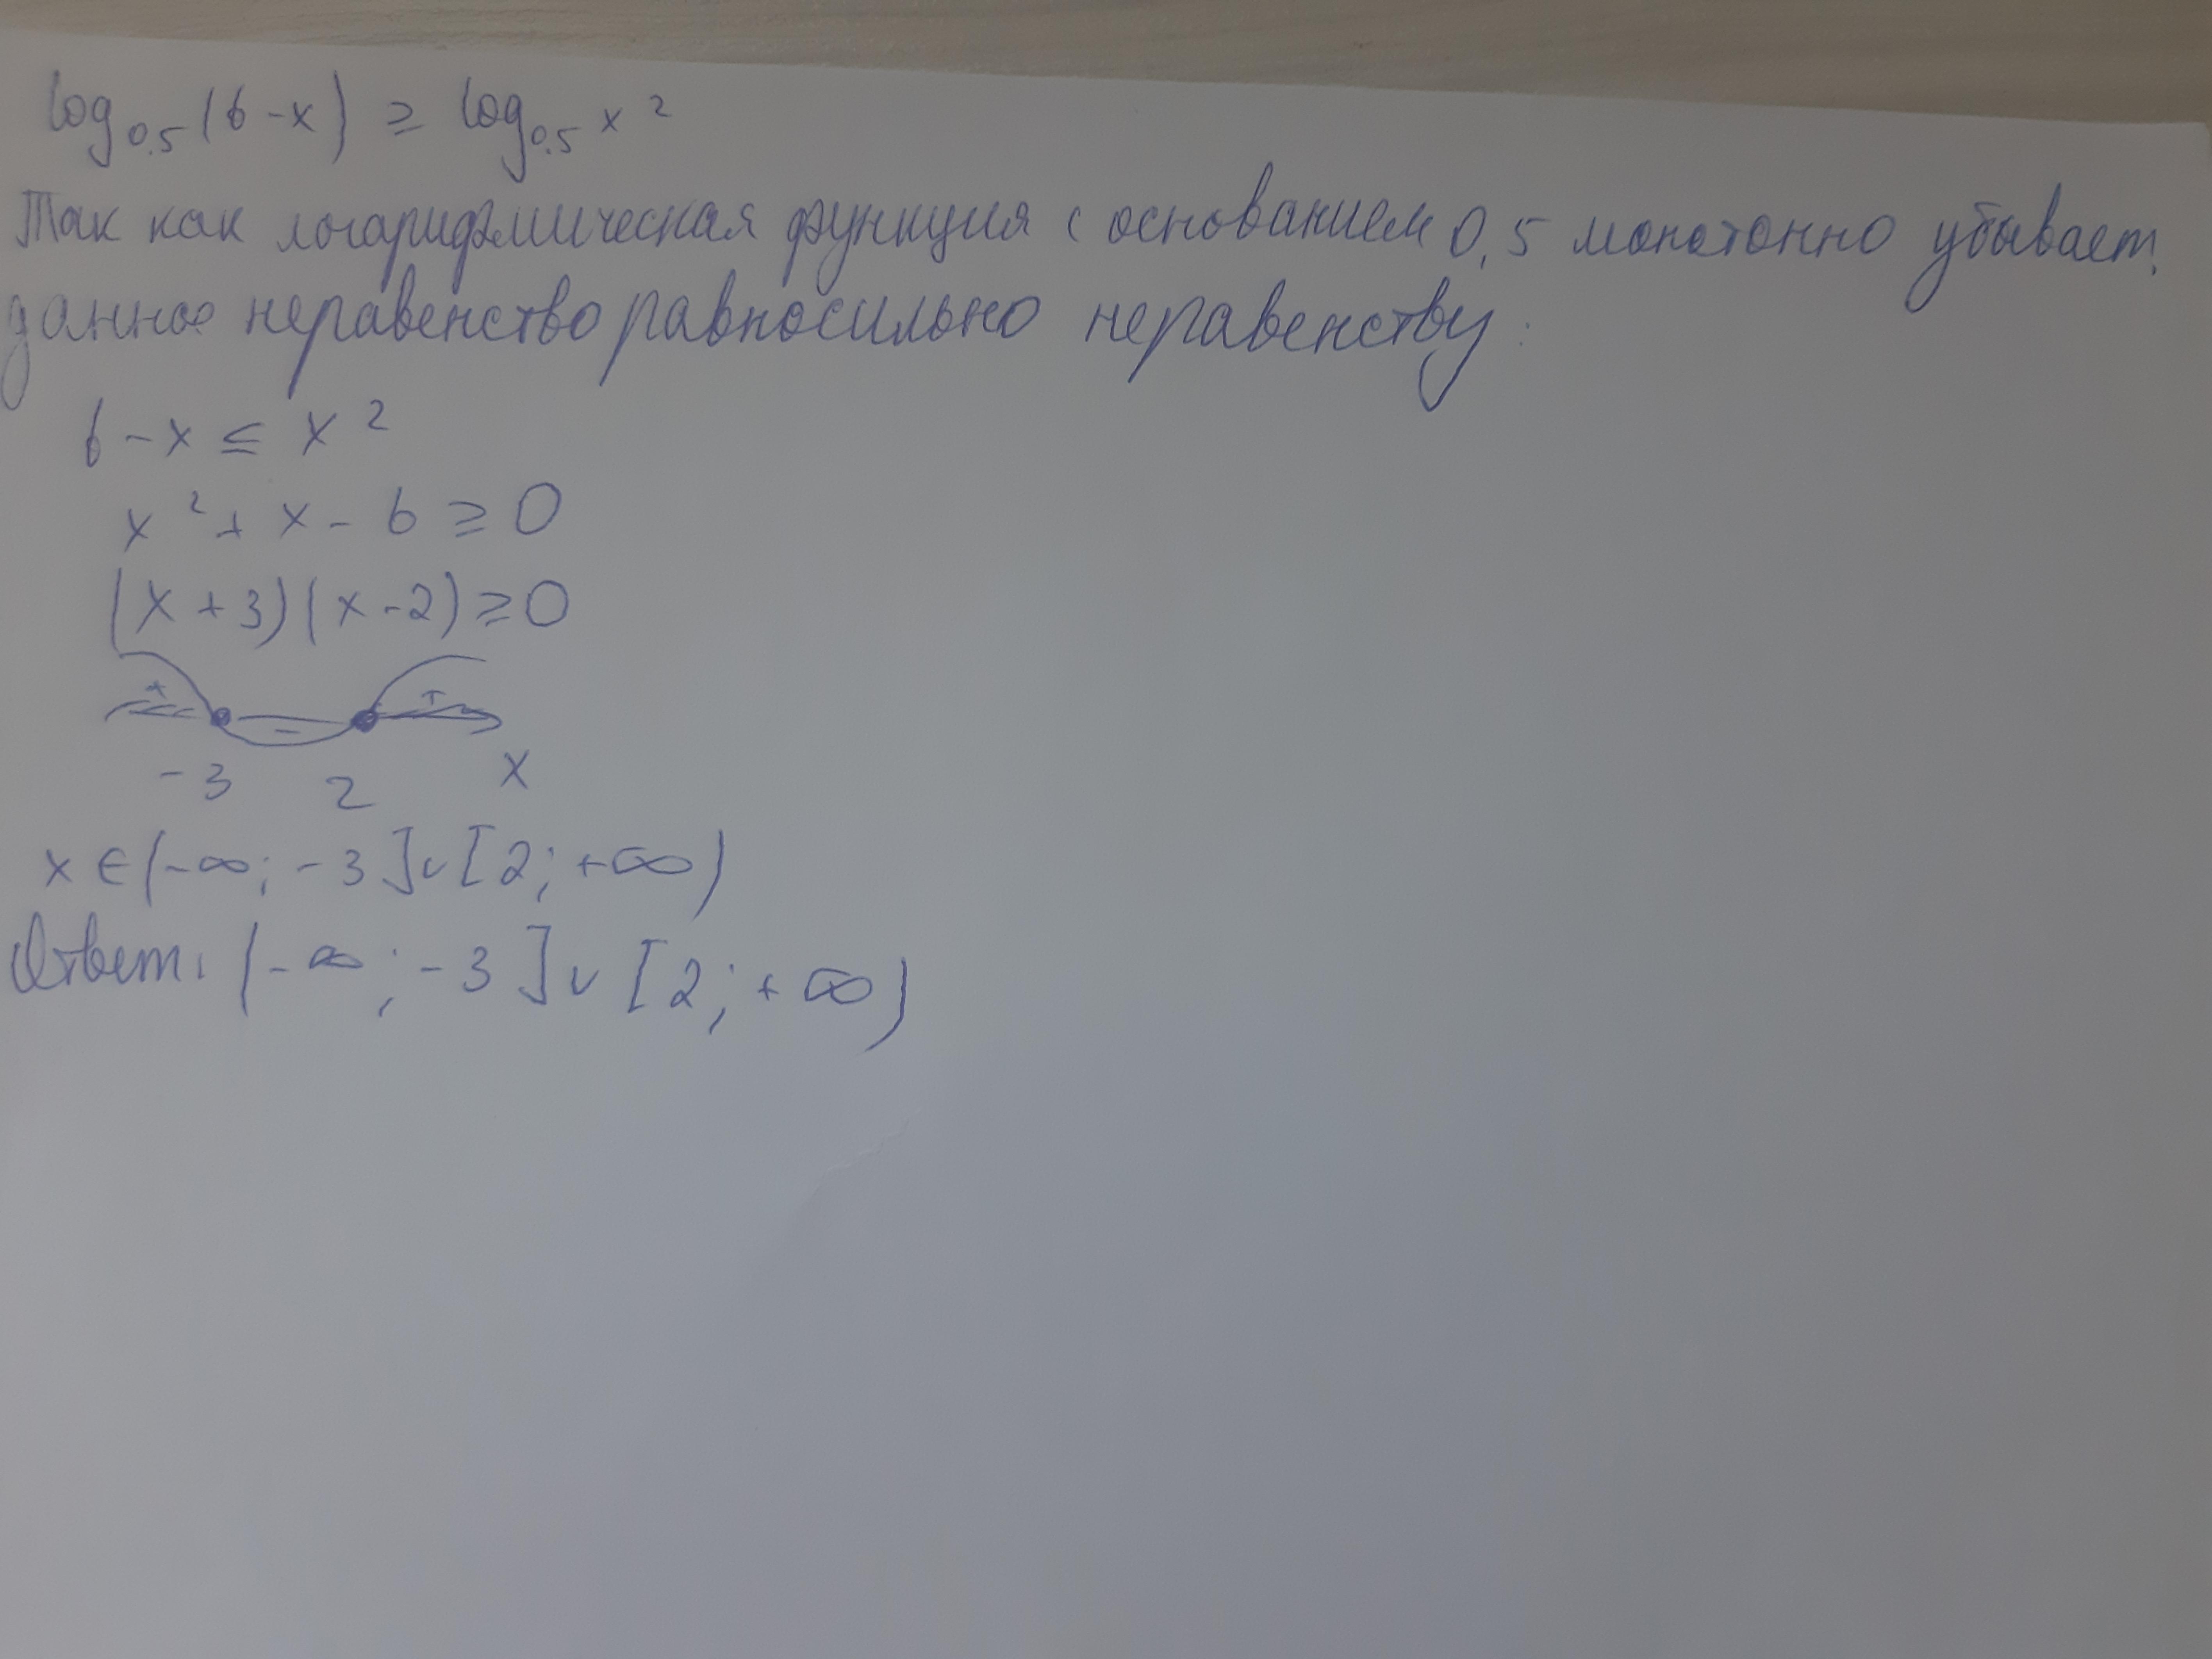 log₀.₅(6-x) ≥ log₀.₅ x²
Так как логарифмическая функция с основанием 0,5 монотонно убывает,
данное неравенство равносильно неравенству:
6-x ≤ x²
x²+x-6 ≥ 0
(x+3)(x-2) ≥ 0
+ - +
-3 2 x
x ∈ (-∞; -3] ∪ [2; +∞)
Ответ: (-∞; -3] ∪ [2; +∞)